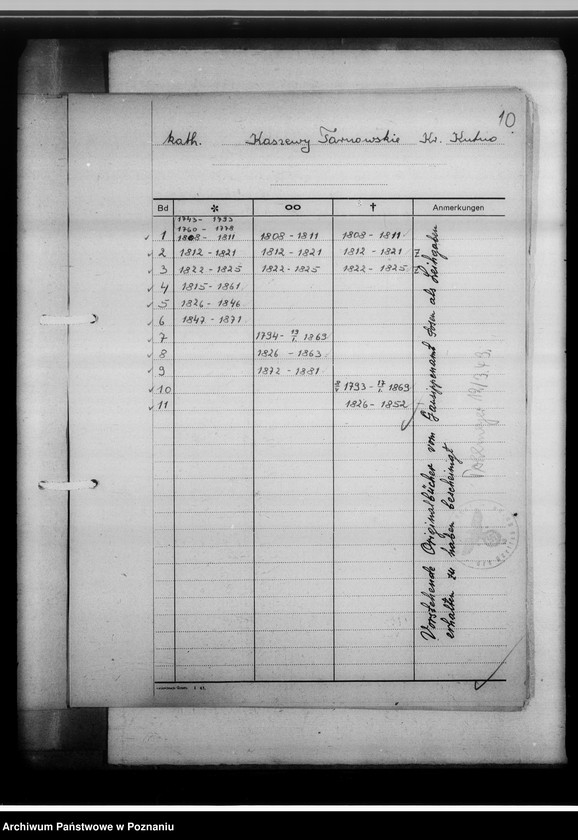 10
kath. Kaszewy Tarnowskie Kr. Kutno
Bd * oo † Anmerkungen
1743- 1793
1760 - 1778
1 1808- 1811 1808 - 1811 1808 - 1811
2 1812 - 1821 1812 - 1821 1812 - 1821 Z
3 1822 - 1825 1822 - 1825 1822 - 1825 Z
4 1815 - 1861
5 1826 - 1846
6 1847 - 1871
7 1794- 1869
8 1826 - 1863
9 1872 - 1881
10 1793 - 1869
11 1826 - 1852
Vorstehende Originalbücher vom Gausippenamt Posen als Leihgaben
erhalten zu haben bescheinigt
Archiwum Państwowe w Poznaniu